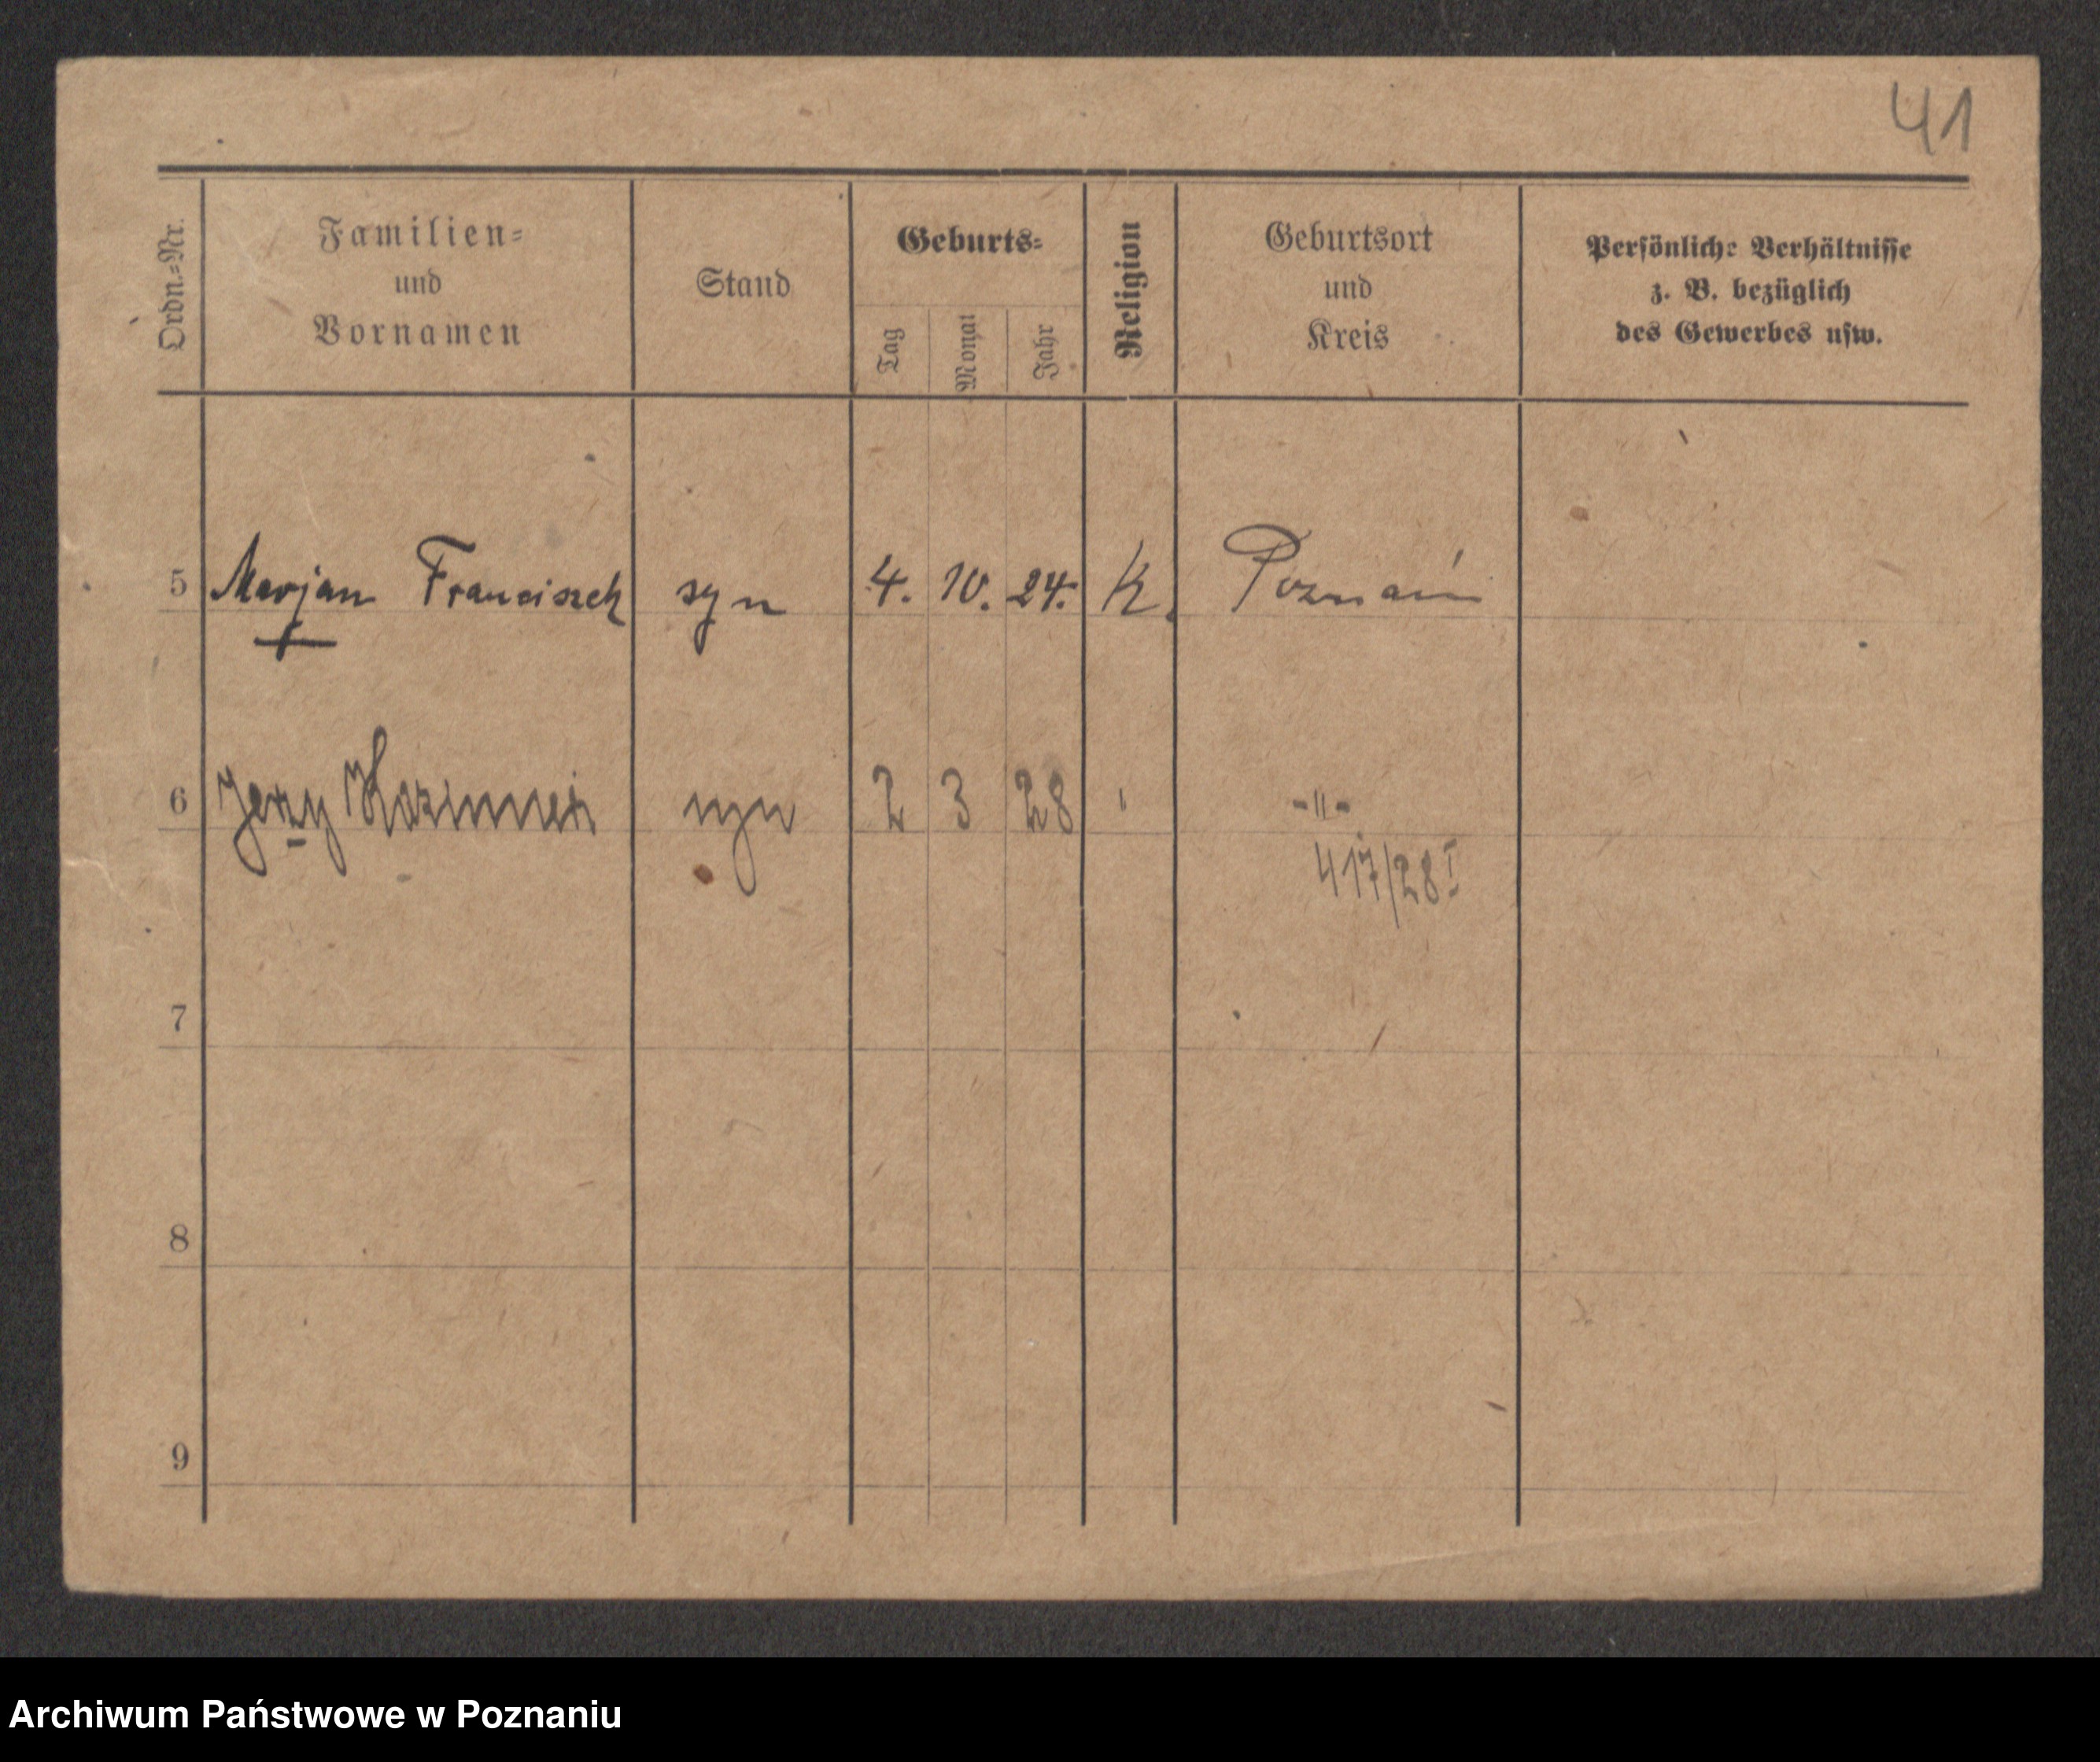 41
Ordn.-Nr.
Familien-
und
Vornamen
Stand
Geburts-
Tag
Monat
Jahr
Religion
Geburtsort
und
Kreis
Persönliche Verhältnisse
z. B. bezüglich
des Gewerbes usw.
5 Marjan Franciszek syn 4. 10. 24. K. Poznań
6 Jerzy Kazimierz syn 2 3 28 " -"-
417/28 I
7
8
9
Archiwum Państwowe w Poznaniu